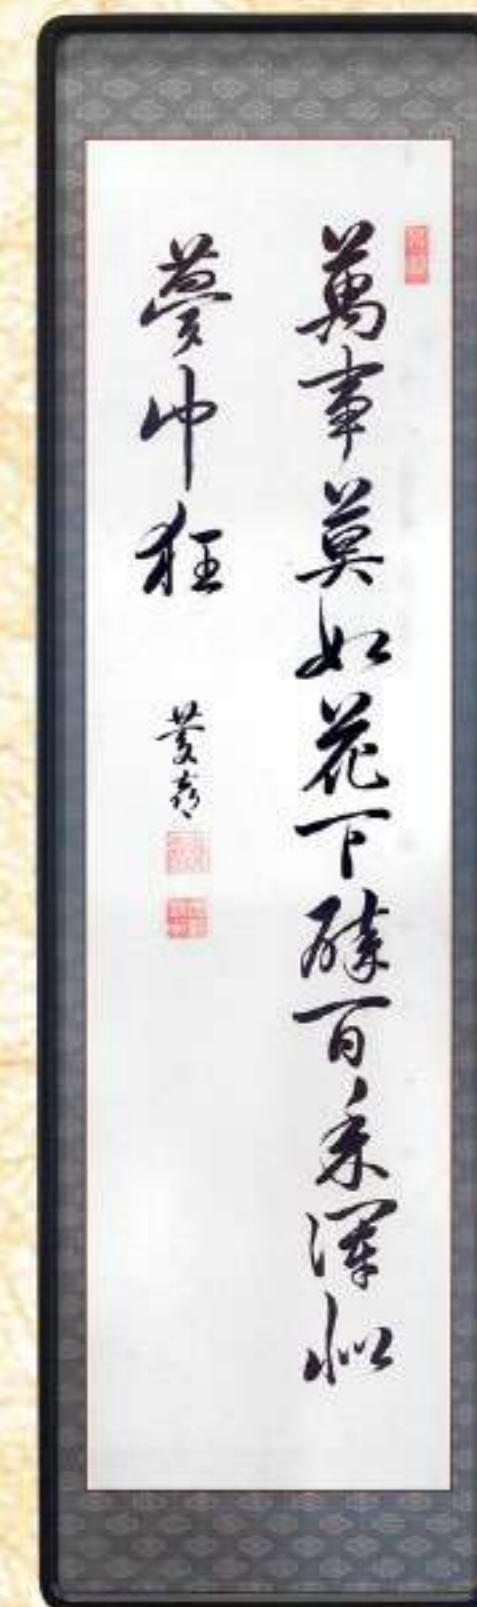 萬事莫如花下醉百年渾似
夢中狂